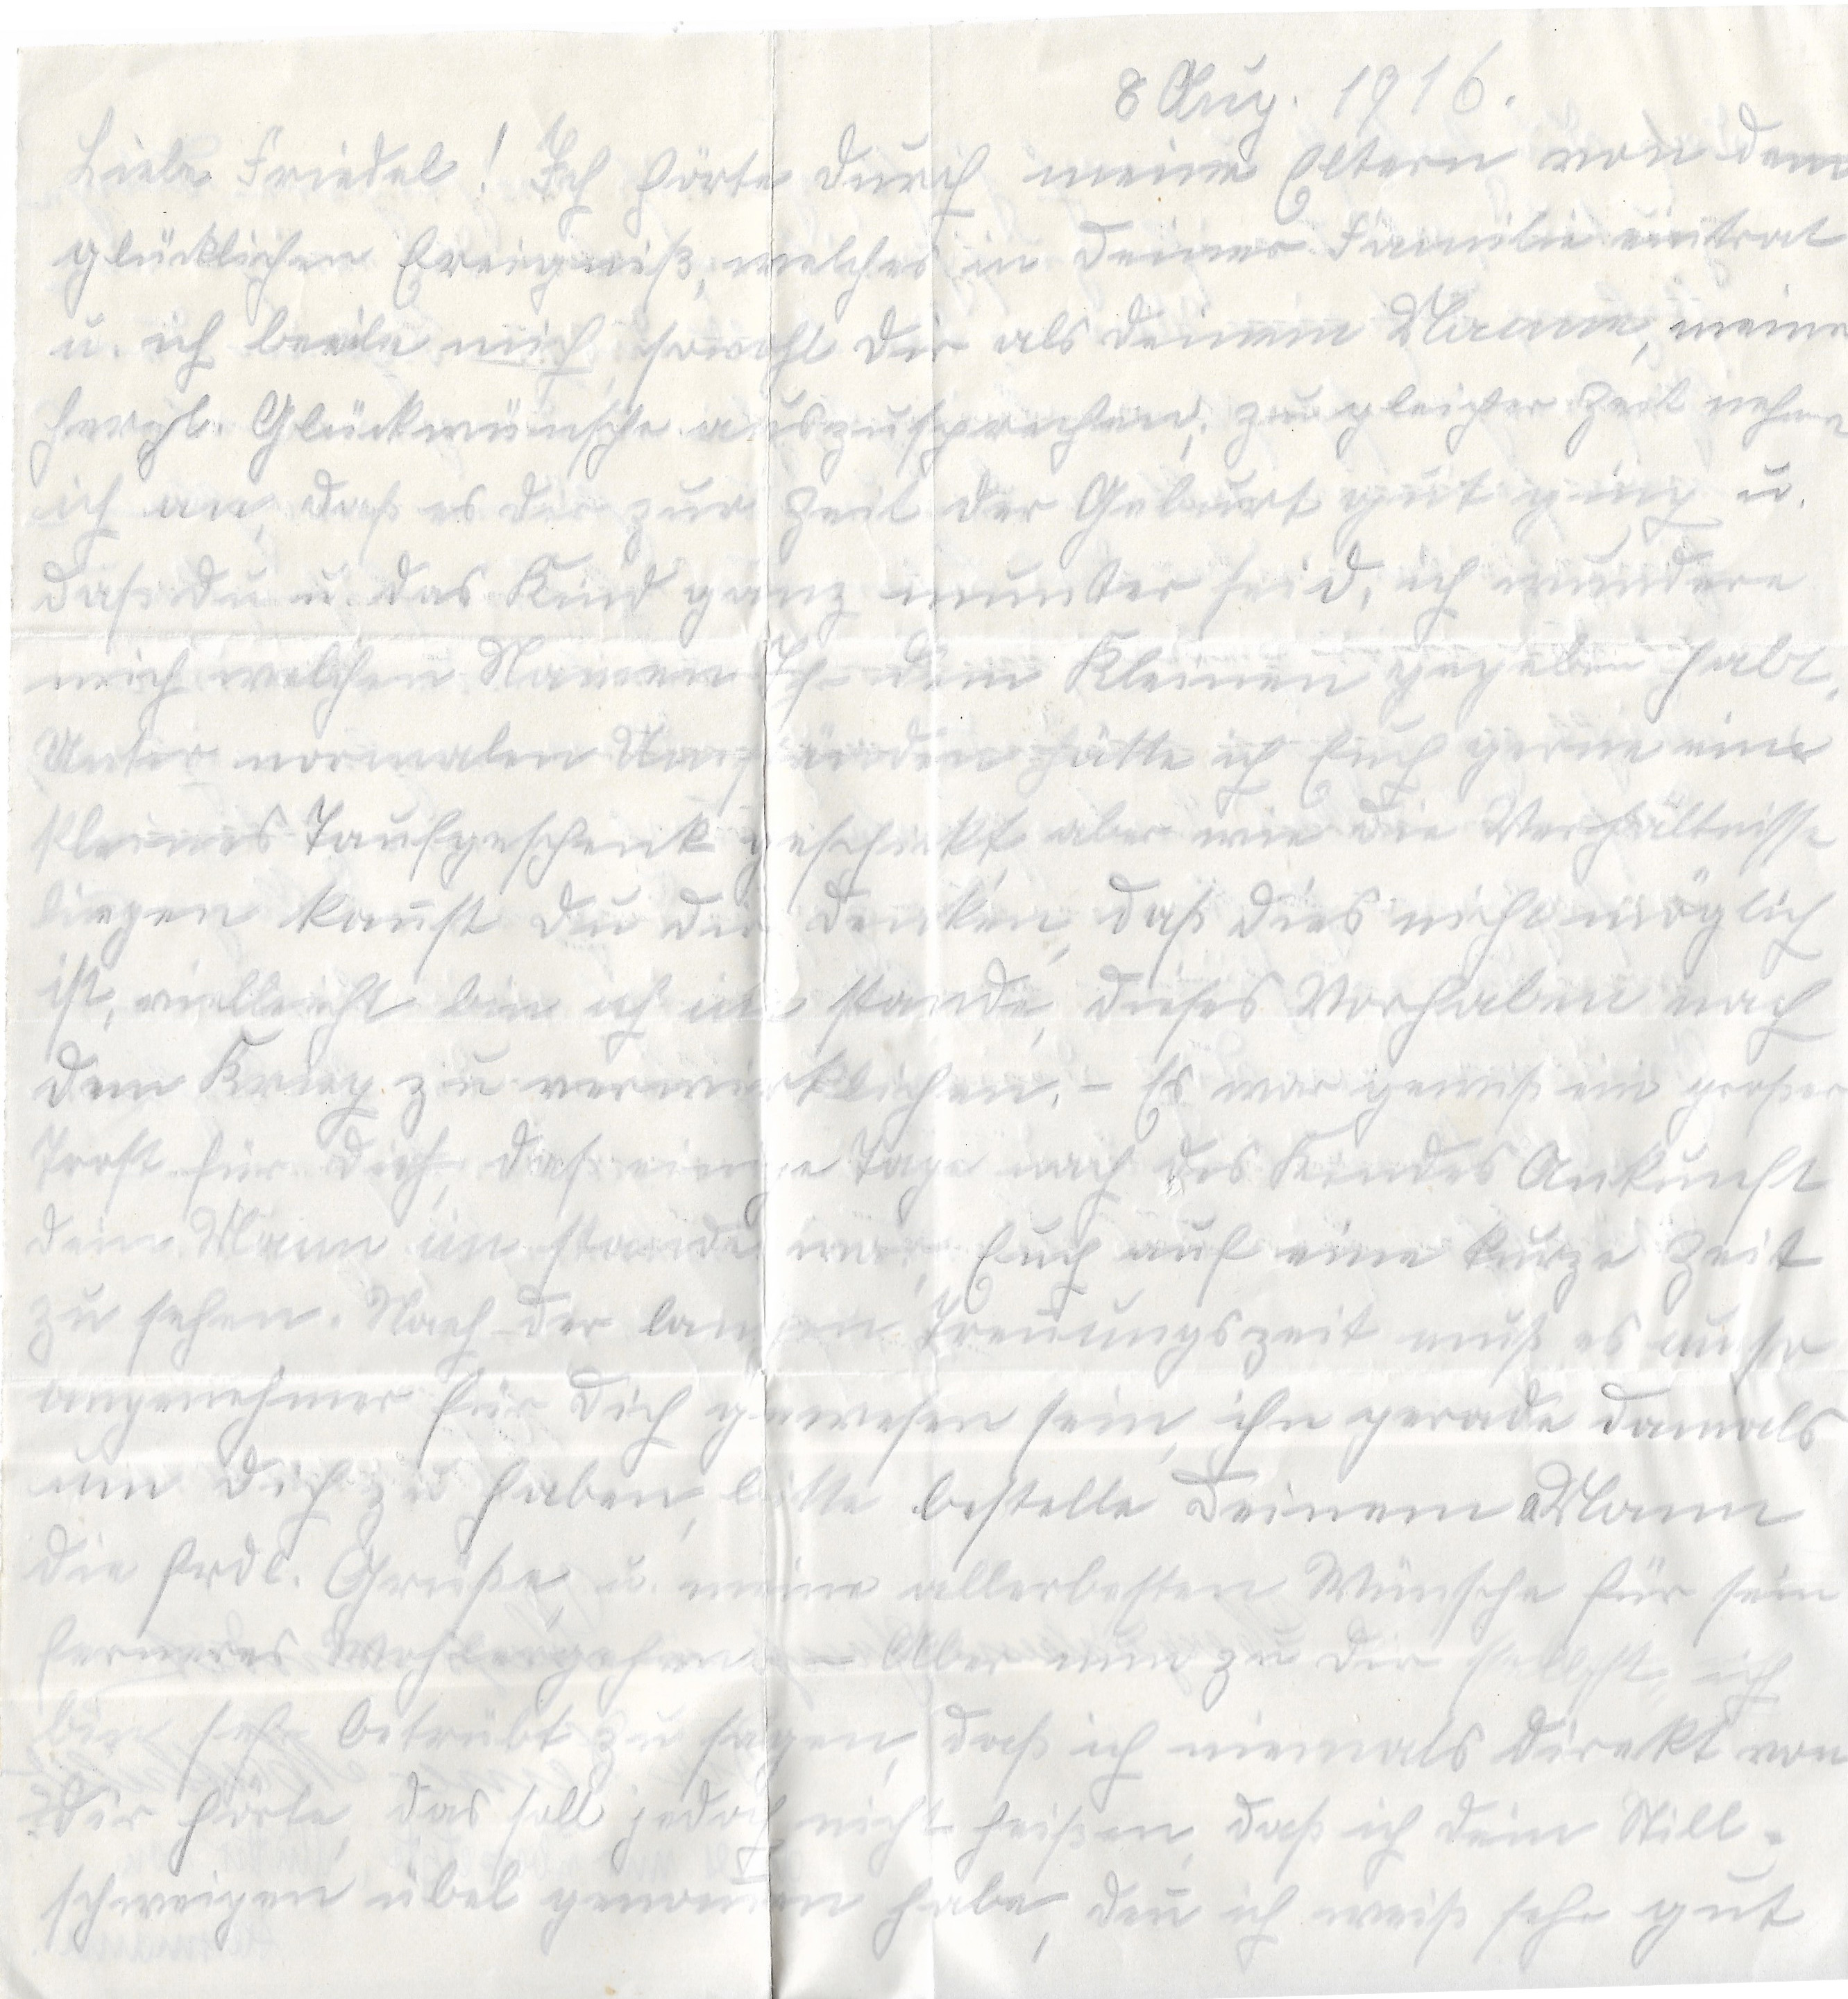 8 Aug. 1916.
Liebe Friedel! Ich hörte durch meine Eltern von dem
glücklichen Ereigniß, welches in deiner Familie eintrat
u. ich beeile mich, sowohl dir als deinem Manne, meine
herzl. Glückwünsche auszusprechen, zu gleicher Zeit nehme
ich an, daß es dir zur Zeit der Geburt gut ging u.
daß du u. das Kind ganz munter seid, ich wundere
mich welchen Namen Ihr dem Kleinen gegeben habt.
Unter normalen Umständen hätte ich Euch gerne ein
kleines Taufgeschenk geschickt, aber wie die Verhältnisse
liegen kannst du dir denken, daß dies nicht möglich
ist, vielleicht bin ich im stande, dieses Vorhaben nach
dem Krieg zu verwirklichen. – Es war gewiß ein großer
Trost für dich, daß einige Tage nach des Kindes Ankunft
dein Mann im stande war, Euch auf eine kurze Zeit
zu sehen. Nach der langen Trennungszeit muß es um so
angenehmer für dich gewesen sein, ihn gerade damals
um dich zu haben, bitte bestelle deinem Mann
die frdl. Grüße, u. meine allerbesten Wünsche für sein
ferneres Wohlergehen. – Aber nun zu dir selbst, ich
bin sehr betrübt zu sagen, daß ich niemals direkt von
dir hörte, das soll jedoch nicht heißen, daß ich dein Still-
schweigen übel genommen habe, denn ich weiß sehr gut